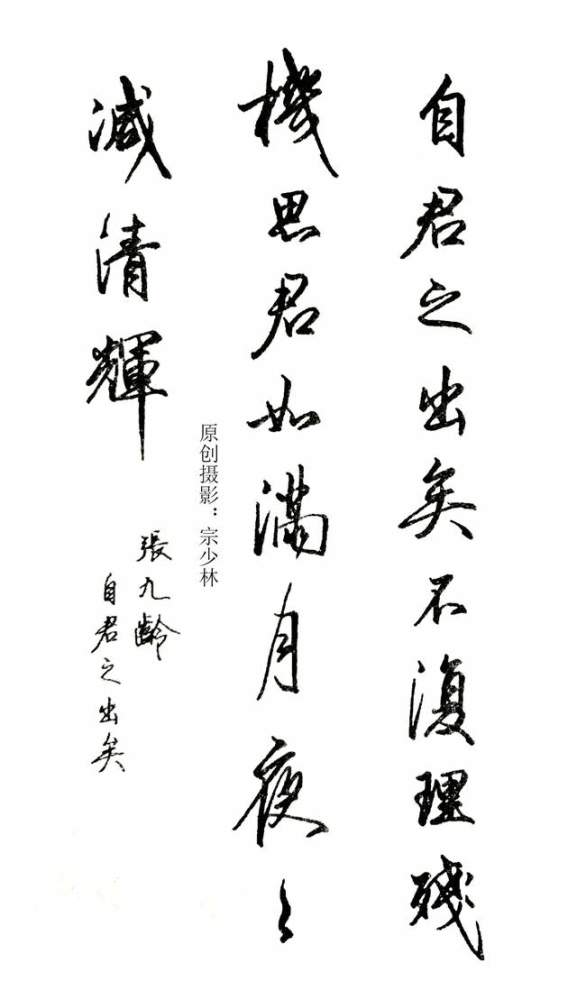 自君之出矣不復理殘
機思君如滿月夜々
減清輝
原创摄影：宗少林
張九齡
自君之出矣